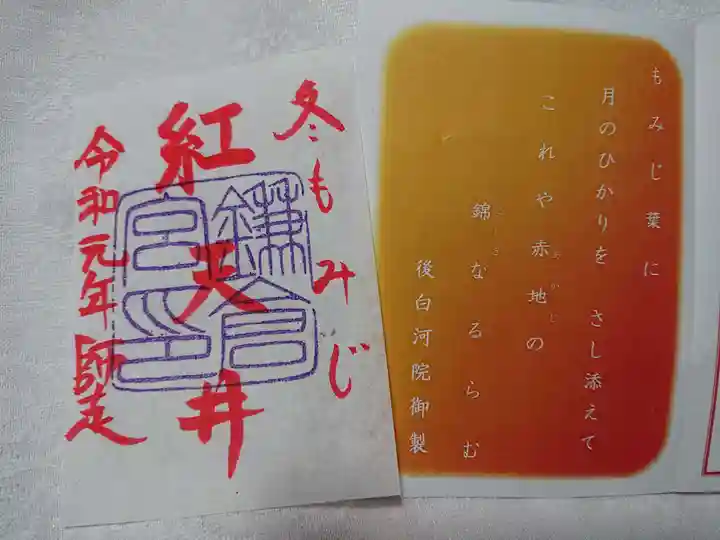 冬もみじ
紅天井
令和元年師走
鎌倉宮印
もみじ葉に
月のひかりを さし添えて
これや赤地の
あかじ
錦なるらむ
にしき
後白河院御製